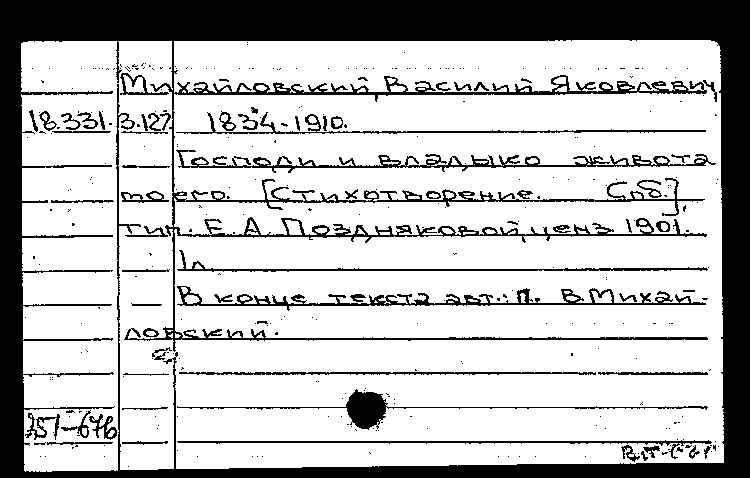 Михайловский, Василий Яковлевич,
18.331.3.127. 1834-1910.
Господи и владыко живота
моего. [Стихотворение. Спб.],
тип. Е. А. Поздняковой, ценз 1901.
1л.
В конце текста авт.: П. В. Михай-
ловский.
251-676